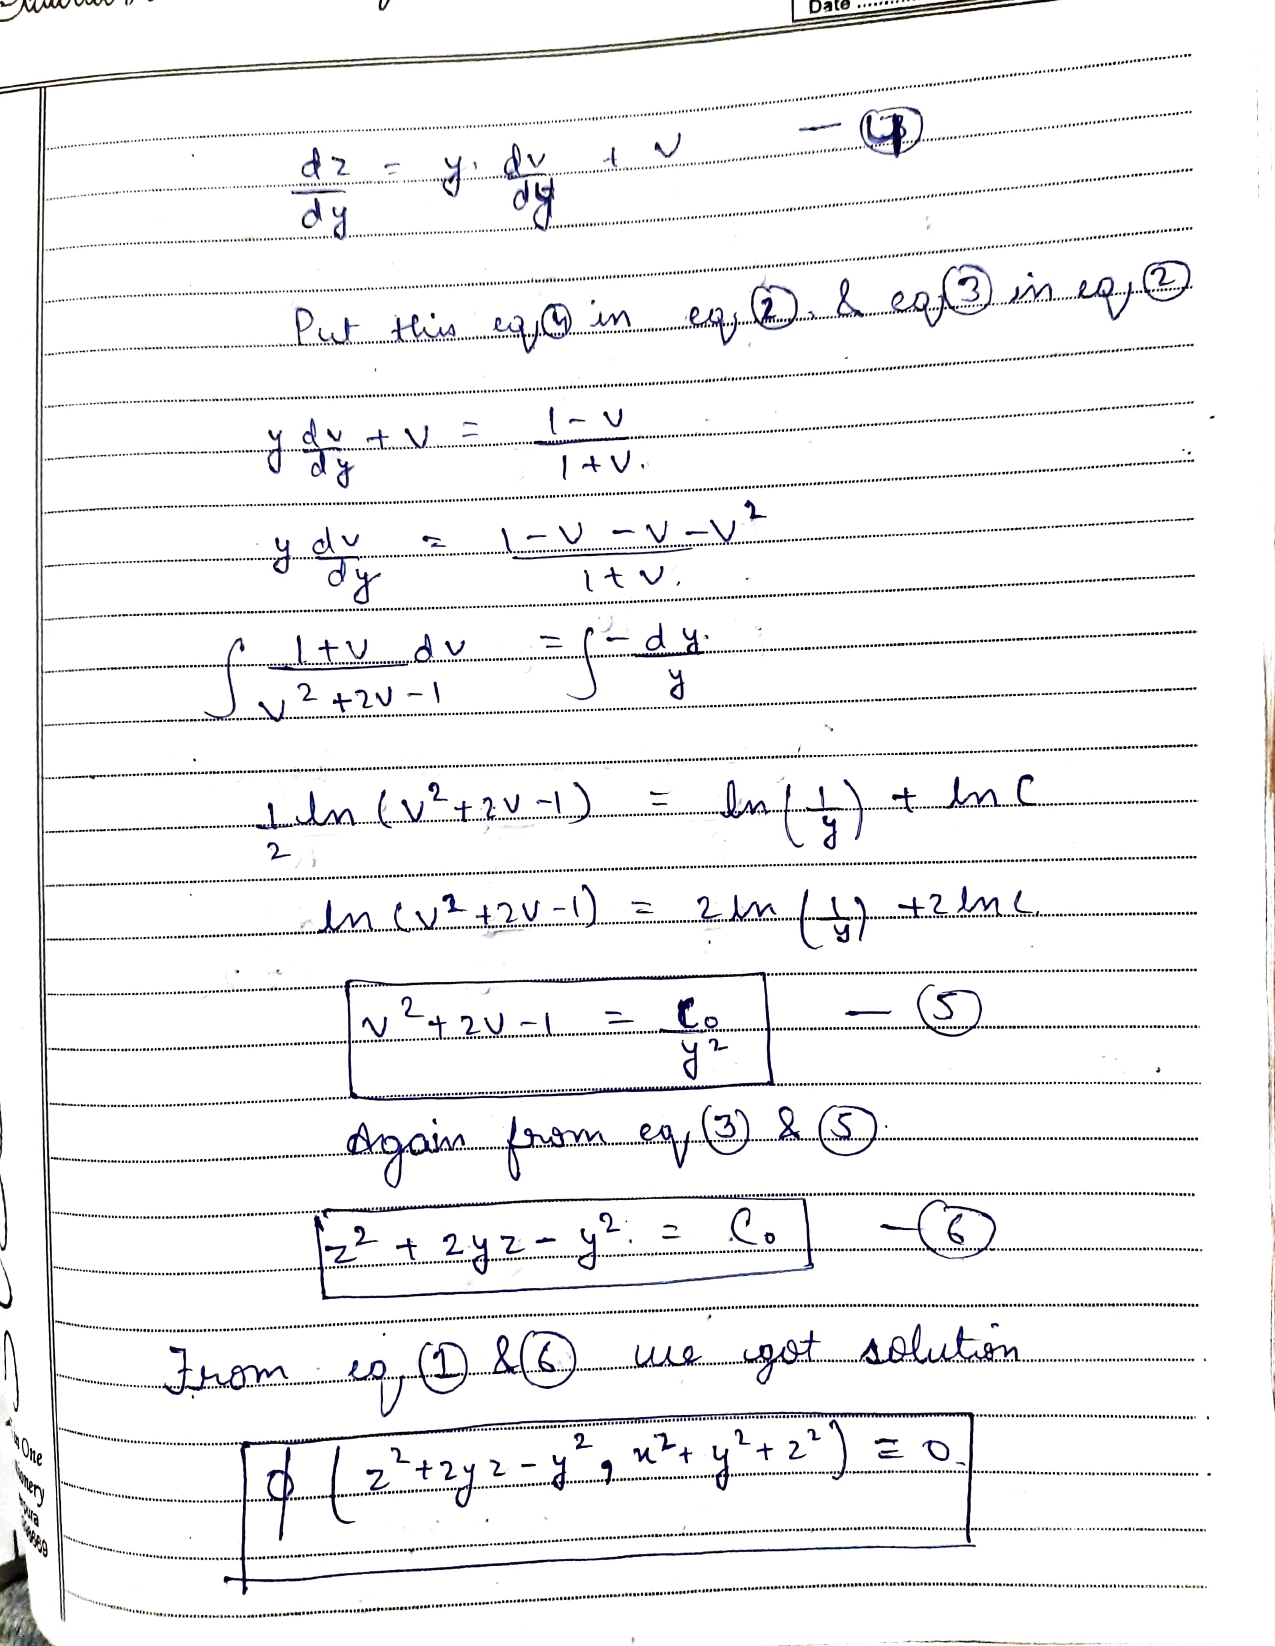 Date ........
dz/dy = y. dv/dy + v — ④
Put this eq, ④ in eq, ②. & eq, ③ in eq, ②
y dv/dy + v = 1-v / 1+v.
y dv/dy = 1-v-v-v² / 1+v.
∫ 1+v / v²+2v-1 dv = ∫ - dy / y
1/2 ln (v²+2v-1) = ln (1/y) + ln C
ln (v²+2v-1) = 2 ln (1/y) + 2 ln C.
v²+2v-1 = C₀/y² — ⑤
Again from eq, ③ & ⑤.
z² + 2yz - y² = C₀ — ⑥
From eq, ① & ⑥ we got solution
ϕ (z²+2yz-y², x²+y²+z²) = 0.
One